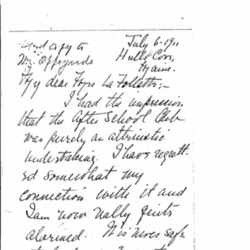 July 6-191
Hulls Cove,
Maine.
My dear Miss La Follette:-
I had the impression
that the After School Club
was purely an altruistic
undertaking. I have regrett-
ed somewhat my
connection with it and
I am now really quite
alarmed. It is never safe